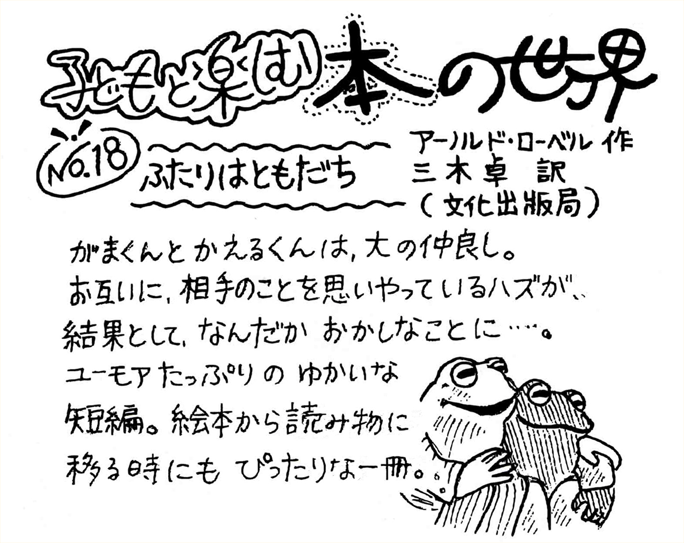 子どもと楽しむ本の世界
No.18
ふたりはともだち
アーノルド・ローベル 作
三木卓 訳
(文化出版局)
がまくんとかえるくんは,大の仲良し。
お互いに,相手のことを思いやっているハズが、、
結果として,なんだか おかしなことに‥‥。
ユーモアたっぷりの ゆかいな
短編。絵本から読み物に
移る時にも ぴったりな一冊。